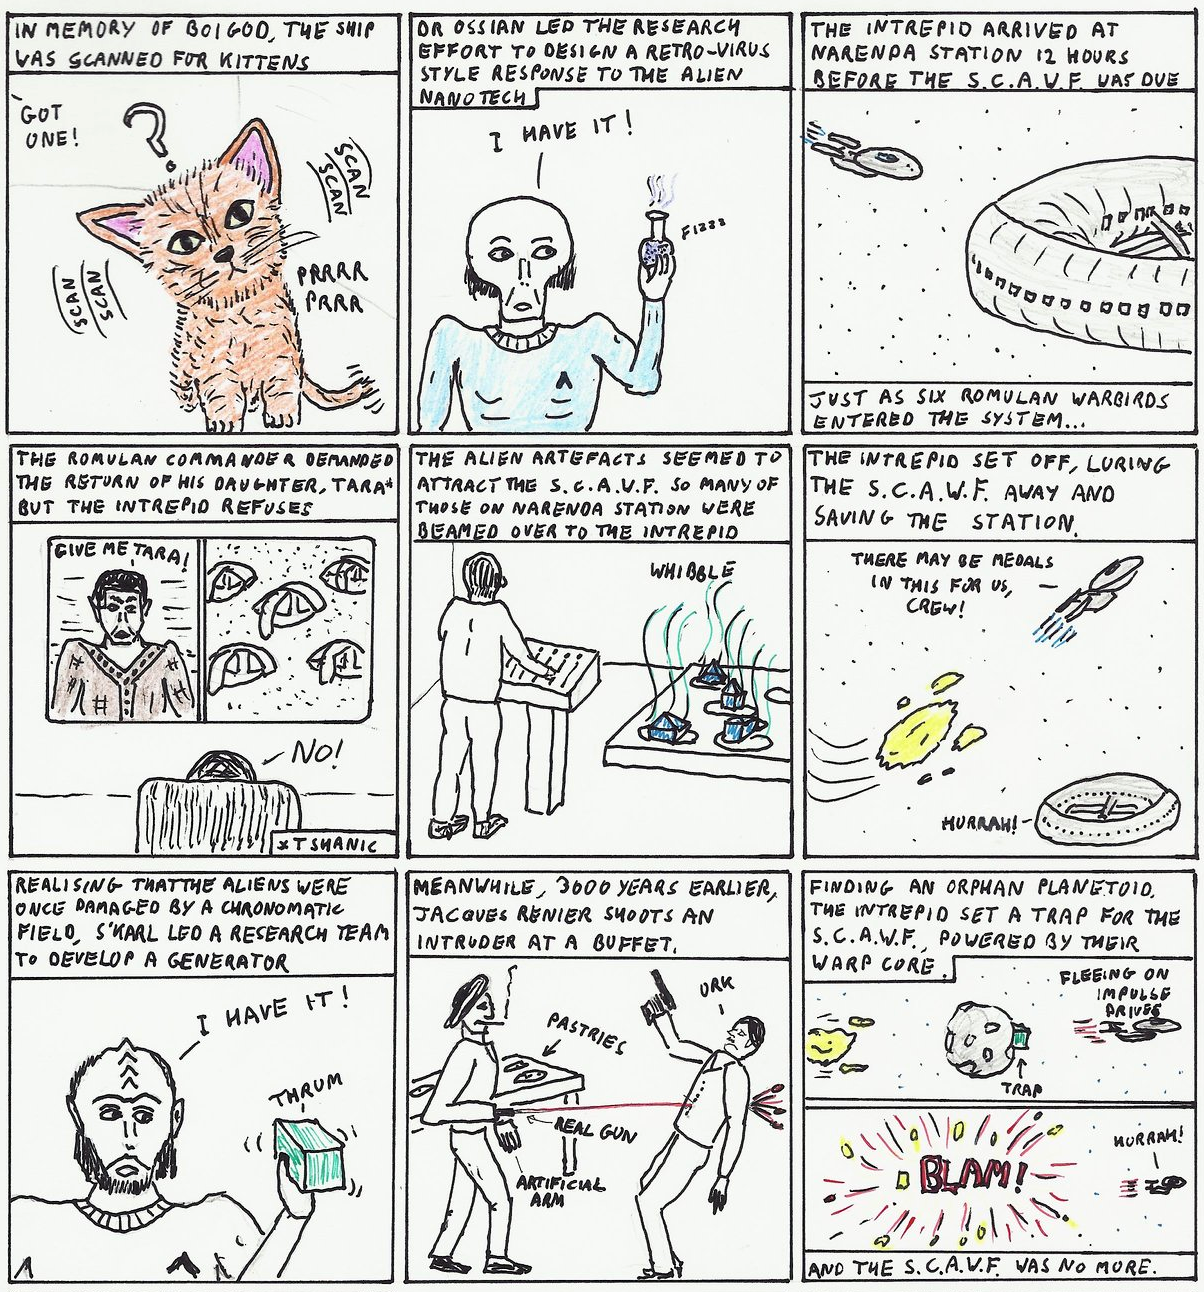 IN MEMORY OF BOIGOD, THE SHIP
WAS SCANNED FOR KITTENS
GOT
ONE!
?
SCAN
SCAN
SCAN
SCAN
PRRRR
PRRR
DR OSSIAN LED THE RESEARCH
EFFORT TO DESIGN A RETRO-VIRUS
STYLE RESPONSE TO THE ALIEN
NANOTECH
I HAVE IT!
FIZZZ
THE INTREPID ARRIVED AT
NARENDA STATION 12 HOURS
BEFORE THE S.C.A.W.F. WAS DUE
JUST AS SIX ROMULAN WARBIRDS
ENTERED THE SYSTEM...
THE ROMULAN COMMANDER DEMANDED
THE RETURN OF HIS DAUGHTER, TARA*
BUT THE INTREPID REFUSES
GIVE ME TARA!
NO!
*T'SHANIC
THE ALIEN ARTEFACTS SEEMED TO
ATTRACT THE S.C.A.W.F. SO MANY OF
THOSE ON NARENDA STATION WERE
BEAMED OVER TO THE INTREPID
WHIBBLE
THE INTREPID SET OFF, LURING
THE S.C.A.W.F. AWAY AND
SAVING THE STATION.
THERE MAY BE MEDALS
IN THIS FOR US,
CREW!
HURRAH!
REALISING THAT THE ALIENS WERE
ONCE DAMAGED BY A CHRONOMATIC
FIELD, S'KARL LED A RESEARCH TEAM
TO DEVELOP A GENERATOR
I HAVE IT!
THRUM
MEANWHILE, 3000 YEARS EARLIER,
JACQUES RENIER SHOOTS AN
INTRUDER AT A BUFFET.
URK
PASTRIES
REAL GUN
ARTIFICIAL
ARM
FINDING AN ORPHAN PLANETOID,
THE INTREPID SET A TRAP FOR THE
S.C.A.W.F., POWERED BY THEIR
WARP CORE.
FLEEING ON
IMPULSE
DRIVES
TRAP
BLAM!
HURRAH!
AND THE S.C.A.W.F. WAS NO MORE.